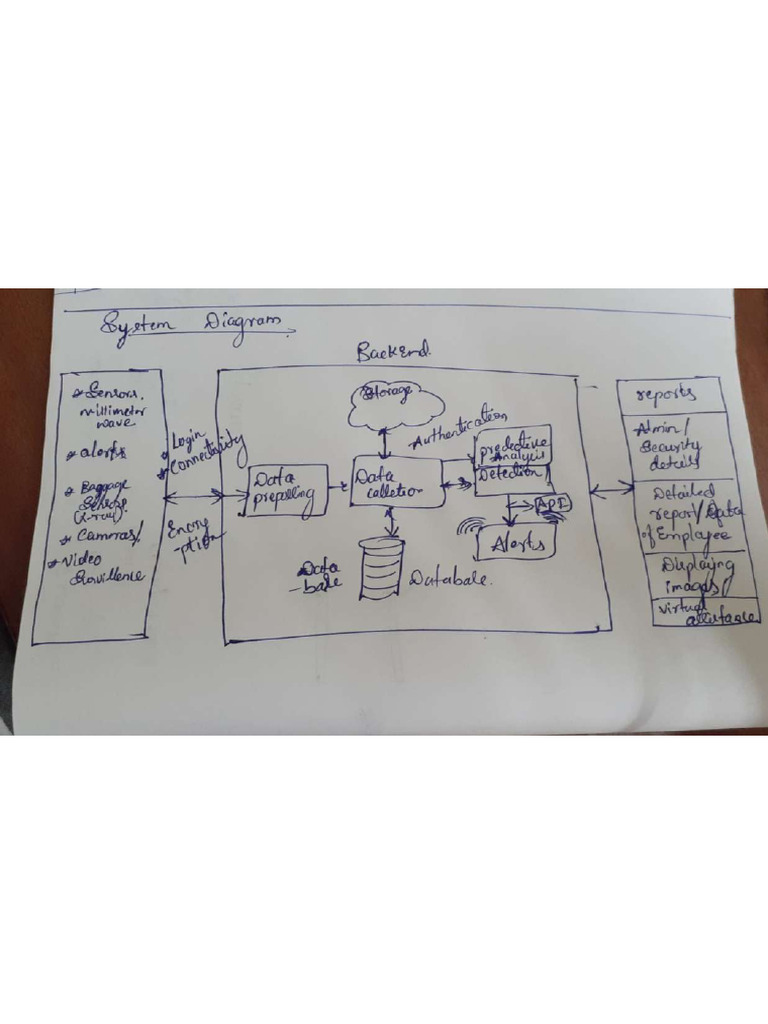 System Diagram.
Backend.
* Sensors.
millimeter
wave
* alerts
* Baggage
Sensors
(x-ray)
* Cameras/
* Video
* Login
* Connectivity
Encry
-ption
Storage
Authentication
Data
Data
collection
predective
Analysis
Detection
API
Alerts
Data
-base
Database.
reports
Admin/
Security
details
Detailed
report/Data
of Employee
Displaying
images
virtual